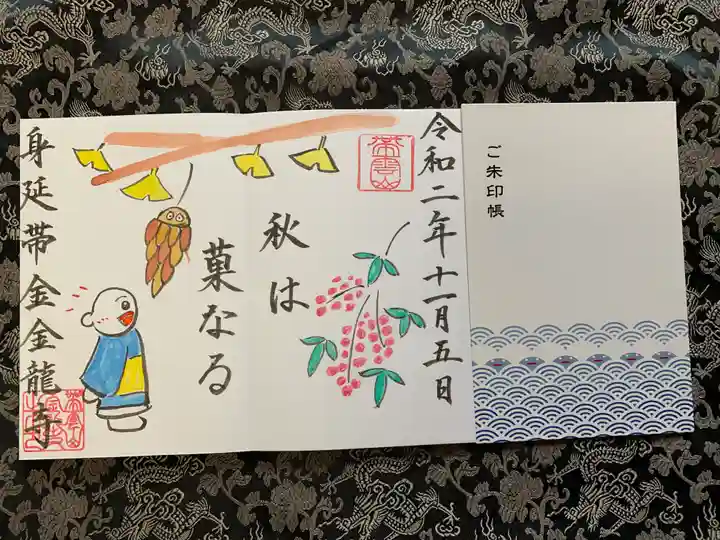 ご朱印帳
令和二年十一月五日
秋は
菓なる
身延帯金金龍寺